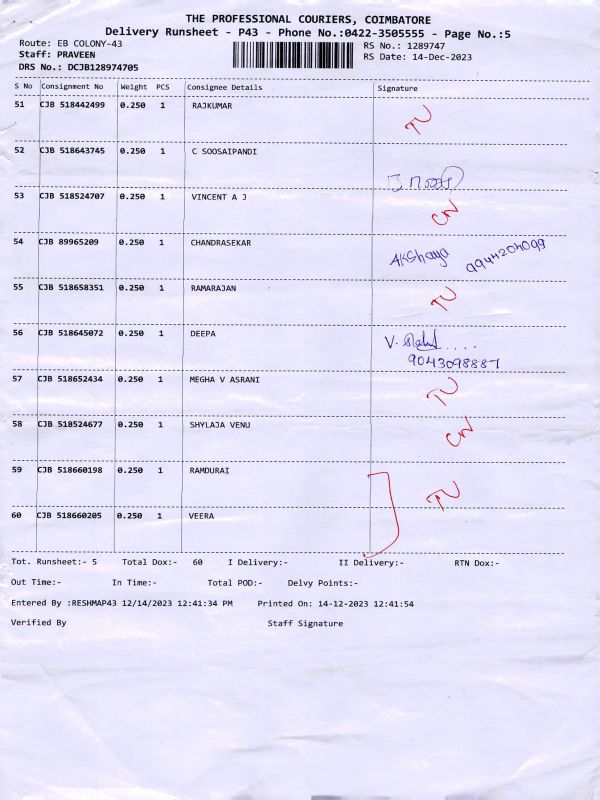 THE PROFESSIONAL COURIERS, COIMBATORE
Delivery Runsheet - P43 - Phone No.:0422-3505555 - Page No.:5
Route: EB COLONY-43 RS No.: 1289747
Staff: PRAVEEN RS Date: 14-Dec-2023
DRS No.: DCJB128974705
S No Consignment No Weight PCS Consignee Details Signature
51 CJB 518442499 0.250 1 RAJKUMAR TU
52 CJB 518643745 0.250 1 C SOOSAIPANDI
53 CJB 518524707 0.250 1 VINCENT A J CN
54 CJB 89965209 0.250 1 CHANDRASEKAR Akshaya 9944204099
55 CJB 518658351 0.250 1 RAMARAJAN TU
56 CJB 518645072 0.250 1 DEEPA V.
9043098887
57 CJB 518652434 0.250 1 MEGHA V ASRANI TU
58 CJB 518524677 0.250 1 SHYLAJA VENU CN
59 CJB 518660198 0.250 1 RAMDURAI TU
60 CJB 518660205 0.250 1 VEERA
Tot. Runsheet:- 5 Total Dox:- 60 I Delivery:- II Delivery:- RTN Dox:-
Out Time:- In Time:- Total POD:- Delvy Points:-
Entered By :RESHMAP43 12/14/2023 12:41:34 PM Printed On: 14-12-2023 12:41:54
Verified By Staff Signature